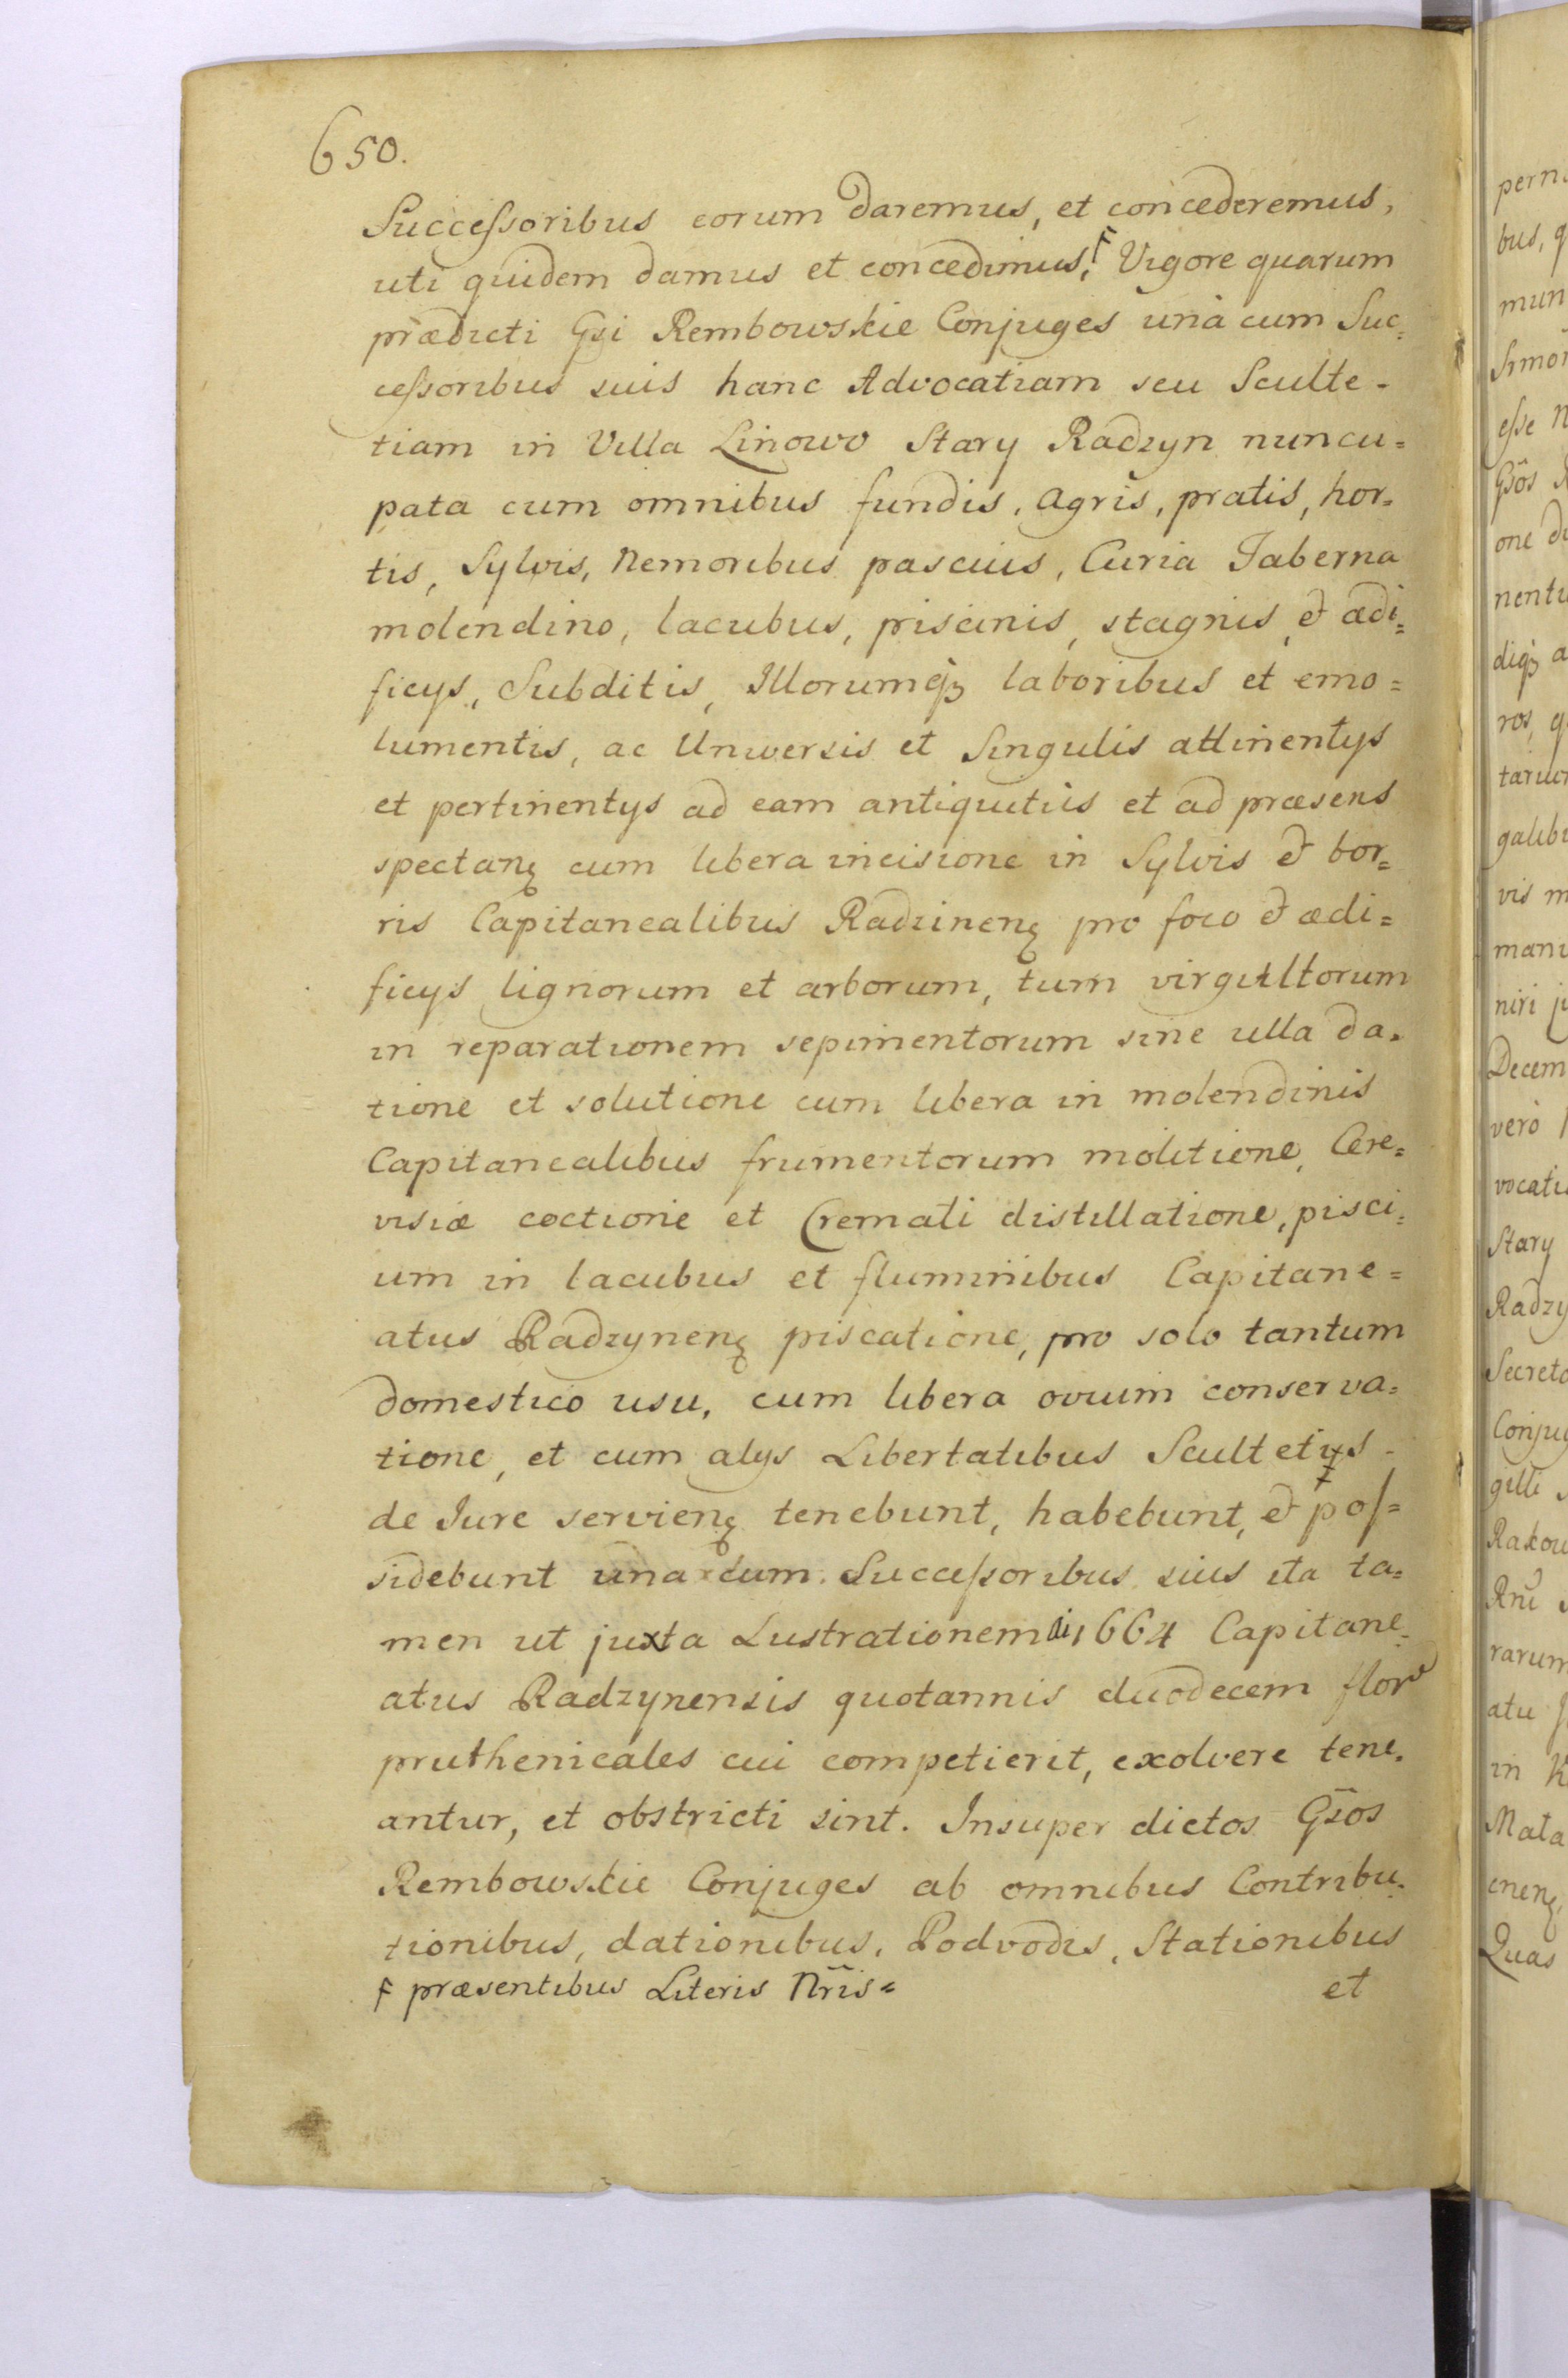 650.
Successoribus eorum daremus, et concederemus,
uti quidem damus et concedimus,F Vigore quarum
prædicti Gsi Rembowskie Conjuges unà cum Suc=
cessoribus suis hanc Advocatiam seu Sculte-
tiam in Villa Linowo Stary Radzyn nuncu=
pata cum omnibus fundis, agris, pratis, hor=
tis, Sylvis, Nemoribus pascuis, Curia Taberna
molendino, lacubus, piscinis, stagnis, et ædi=
ficys, Subditis, Illorumq3 laboribus et emo=
lumentis, ac Universis et Singulis attinentys
et pertinentys ad eam antiquitùs et ad præsens
spectanę cum libera incisione in Sylvis et bor=
ris Capitanealibus Radzinenę pro foco et ædi=
ficys lignorum et arborum, tum virgultorum
in reparationem sepimentorum sine ulla da=
tione et solutione cum libera in molendinis
Capitanealibus frumentorum molitione, Cere=
visiæ coctione et Cremati distillatione, pisci=
um in lacubus et fluminibus Capitane=
atus Radzynenę piscatione, pro solo tantum
domestico usu, cum libera ovium conserva=
tione, et cum alys Libertatibus Scultetys
de Jure servienę tenebunt, habebunt, et pos=
sidebunt unà cum Successoribus suis ita ta=
men ut juxta Lustrationem ai 1664 Capitane=
atus Radzynensis quotannis duodecem flor
pruthenicales cui competierit, exolvere tene=
antur, et obstricti sint. Insuper dictos Gsos
Rembowskie Conjuges ab omnibus Contribu=
tionibus, dationibus, Podvodis, Stationibus
F præsentibus Literis Nris=
et
pern
bus, q
mun
esse N
Gsos
one
nentu
digq3 a
ros, q
galibu
vis m
niri
Decem
verò
vocati
Stary
Radzy
Secreto
Conju
Rakow
rarum
atu
in
Mata
Quas